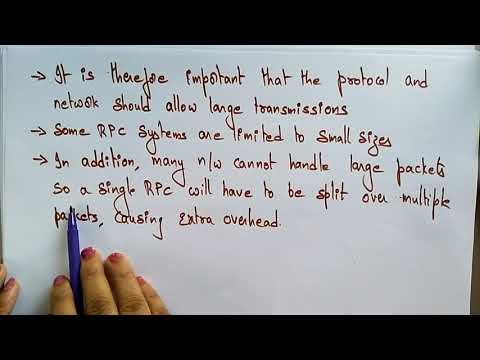 → It is therefore important that the protocol and
network should allow large transmissions
→ Some RPC systems are limited to small sizes
→ In addition, many n/w cannot handle large packets
so a single RPC will have to be split over multiple
packets, causing extra overhead.